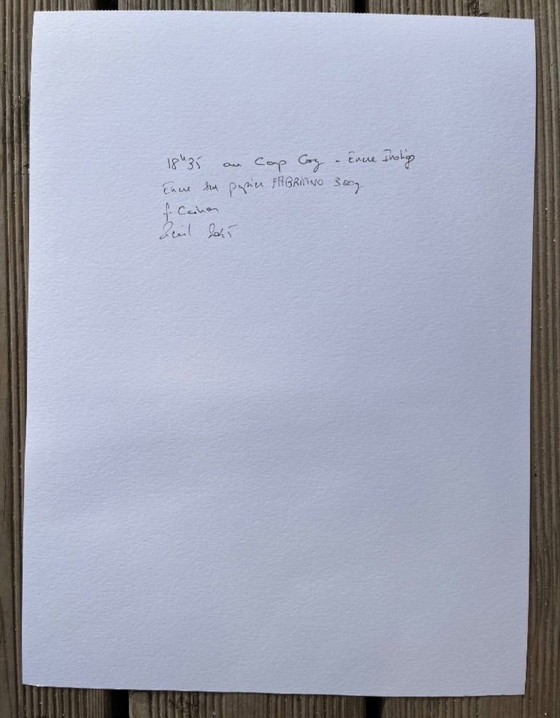 18h35 au Cap Coz - Encre Indigo
Encre sur papier FABRIANO 300g
f.
2025